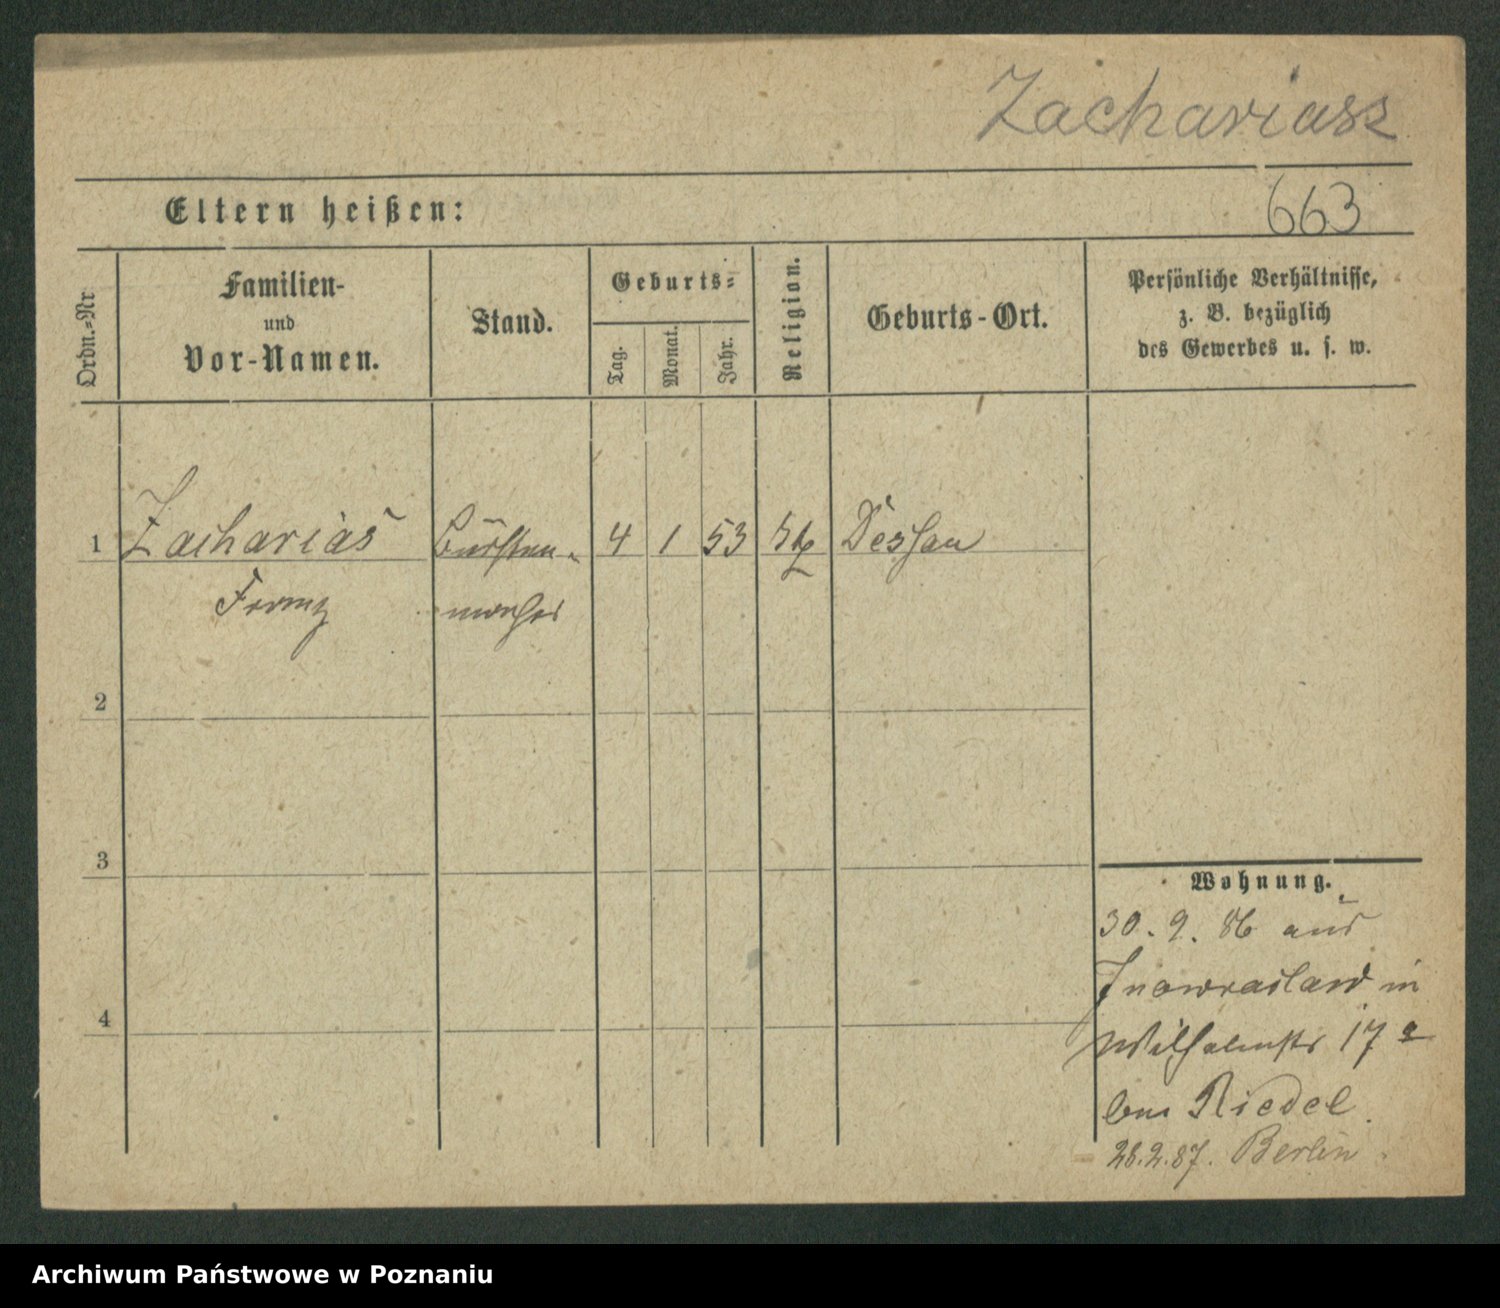 Zachariasz
Eltern heißen:
663
Ordn.=Nr
Familien-
und
Vor-Namen.
Stand.
Geburts=
Tag.
Monat.
Jahr.
Religion.
Geburts-Ort.
Persönliche Verhältnisse,
z. B. bezüglich
des Gewerbes u. s. w.
1 Zacharias Bürsten- 4 1 53 Dessau
Franz macher
2
3
4
Wohnung.
30. 9. 86 aus
Inowraclaw in
Wilhelmstr 17
bei Riedel
28.2.87. Berlin.
Archiwum Państwowe w Poznaniu